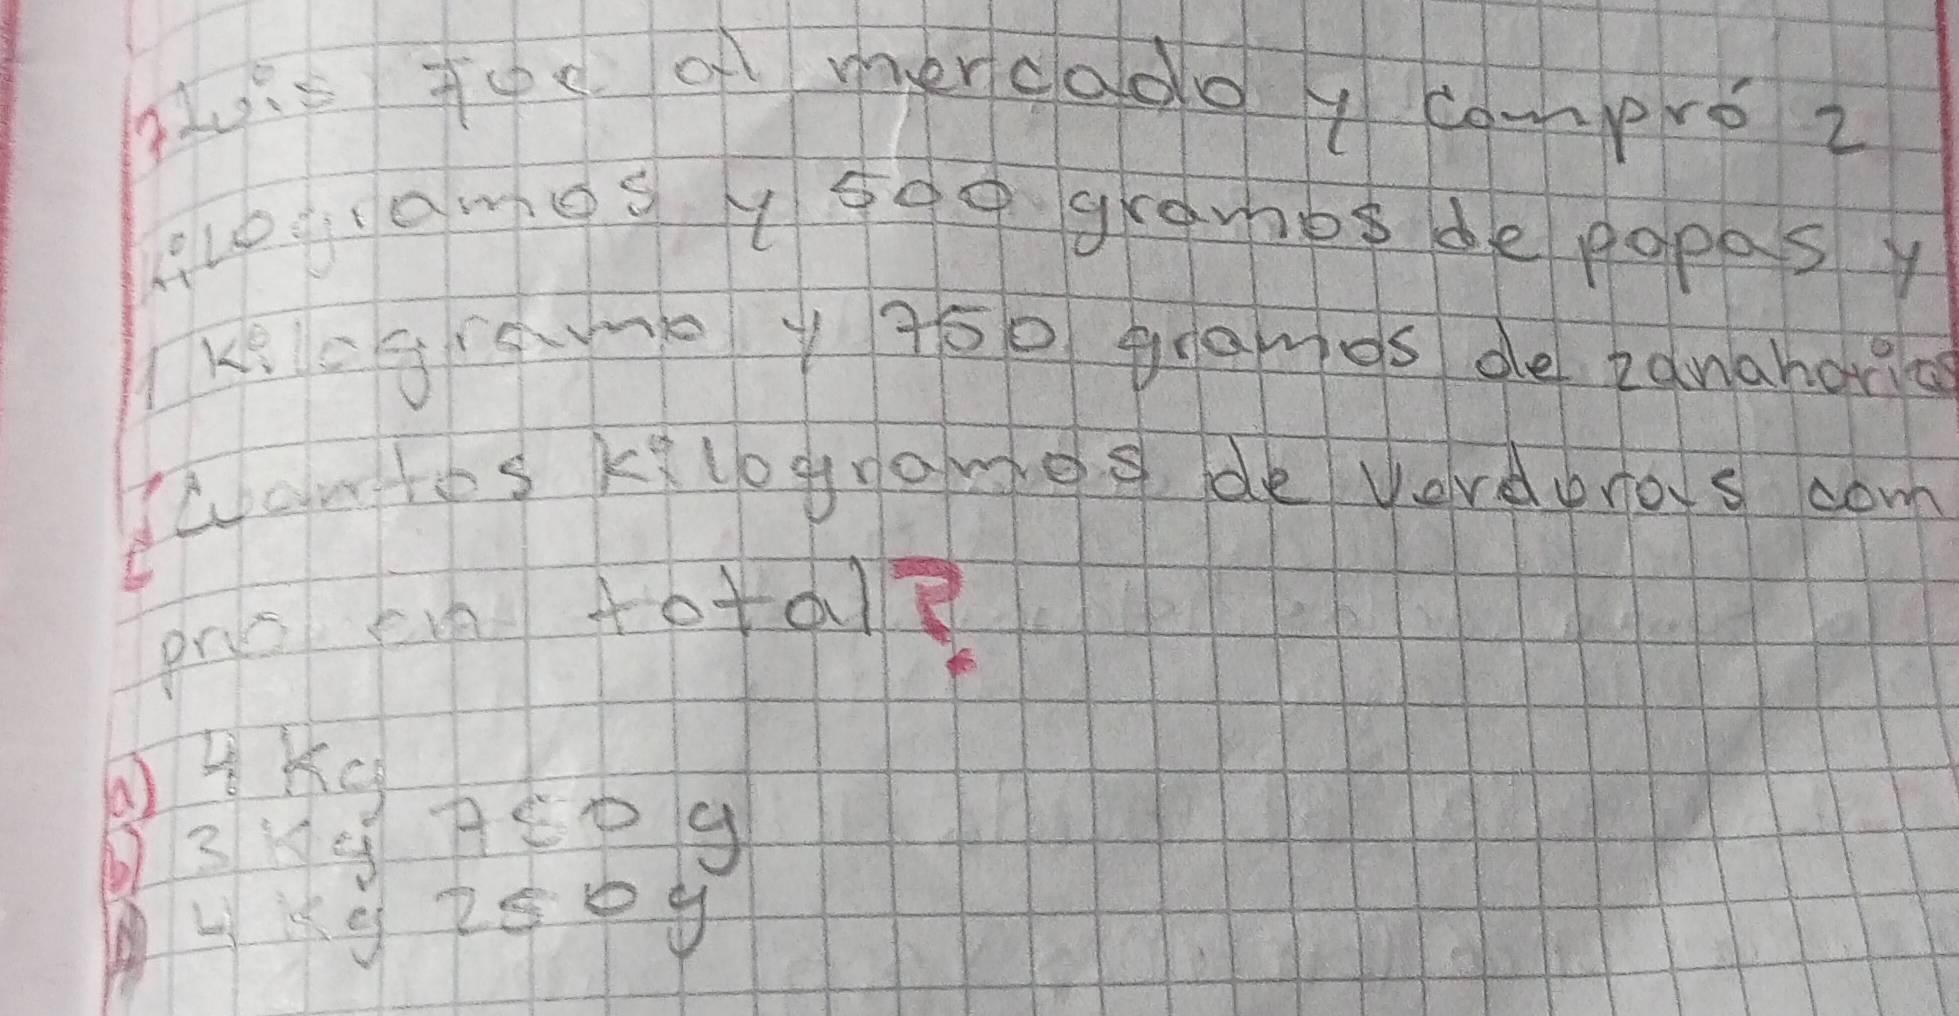 Luis fue al mercado y compró 2
kilogramos y 500 gramos de papas y
1 kilogramo y 750 gramos de zanahorias
¿Cuantos kilogramos de verduras com
pro en total?
a) 4 Kg
b) 3 Kg 750 g
4 Kg 250 g